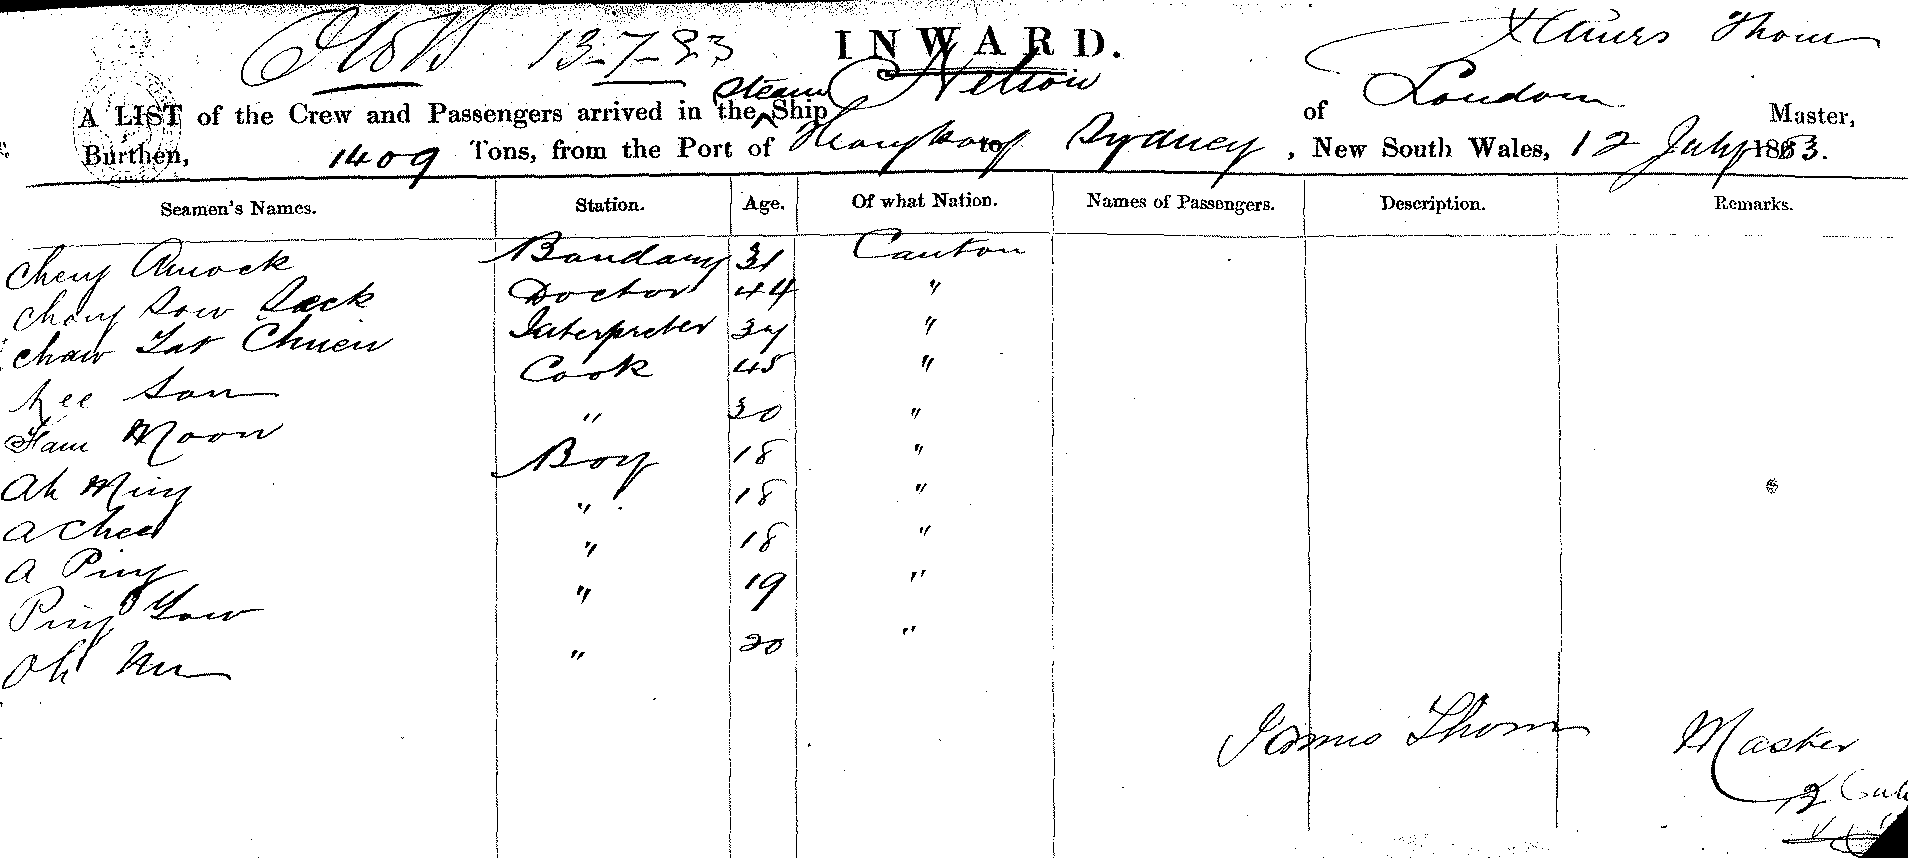 13-7-83 INWARD. James Thom
A LIST of the Crew and Passengers arrived in the Steam Ship Nelson of London Master,
Burthen, 1409 Tons, from the Port of Hongkong to Sydney, New South Wales, 12 July 1883.
Seamen's Names. Station. Age. Of what Nation. Names of Passengers. Description. Remarks.
Cheng Amock Bandary 31 Canton
Chong Sow Sack Doctor 44 "
Chaw Tat Chuen Interpreter 34 "
Lee Son Cook 45 "
Fam Moon " 30 "
Ah Ming Boy 18 "
A Chee " 18 "
A Ping " 18 "
Ping Yow " 19 "
Ah " 20 "
James Thom Master